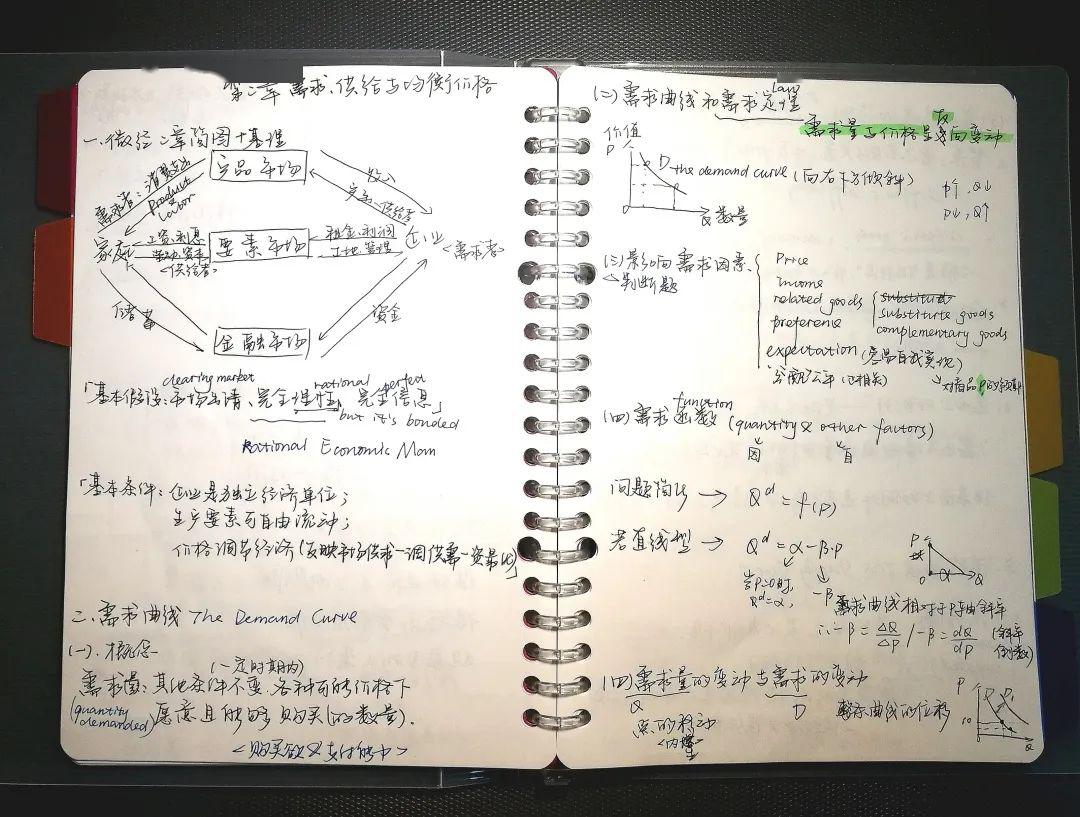 第二章 需求、供给与均衡价格
一、微经二章简图+基理
产品市场
需求者：消费支出
Product
Labor
供给者
家庭
工资、利息
劳动、资本
<供给者>
要素市场
租金、利润
土地、管理
企业
<需求者>
储蓄
资金
金融市场
clearing market rational perfect
「基本假设：市场出清、完全理性、完全信息」
but it's bonded
Rational Economic Man
「基本条件：企业是独立经济单位；
生产要素可自由流动；
价格调节经济（反映市场供求-调供需-资源化）」
二、需求曲线 The Demand Curve
(一).概念
(一定时期内)
需求量：其他条件不变，各种可能价格下
(quantity demanded) 愿意且能够购买(的数量).
<购买欲&支付能力>
(二)需求曲线和需求定理
law
需求量与价格呈反向变动
价值
P
D the demand curve (向右下方倾斜)
P↑,Q↓
P↓,Q↑
0 Q 数量
(三)影响需求因素
△判断题
Price
income
related goods
substitute goods
complementary goods
preference
expectation (容易自我实现)
对商品P的预期
function
(四)需求函数 (quantity & other factors)
因 自
问题简化 → Qᵈ = f(P)
若直线型 → Qᵈ = α - β·P
当P=0时，
Qᵈ=α，
-β 需求曲线相对于P轴斜率
∴ -β = ΔQ/ΔP / -β = dQ/dP (斜率倒数)
P
0 α Q
(四)需求量的变动与需求的变动
Q D
点的移动 曲线的位移
<内>
P
D D₁
10
Q